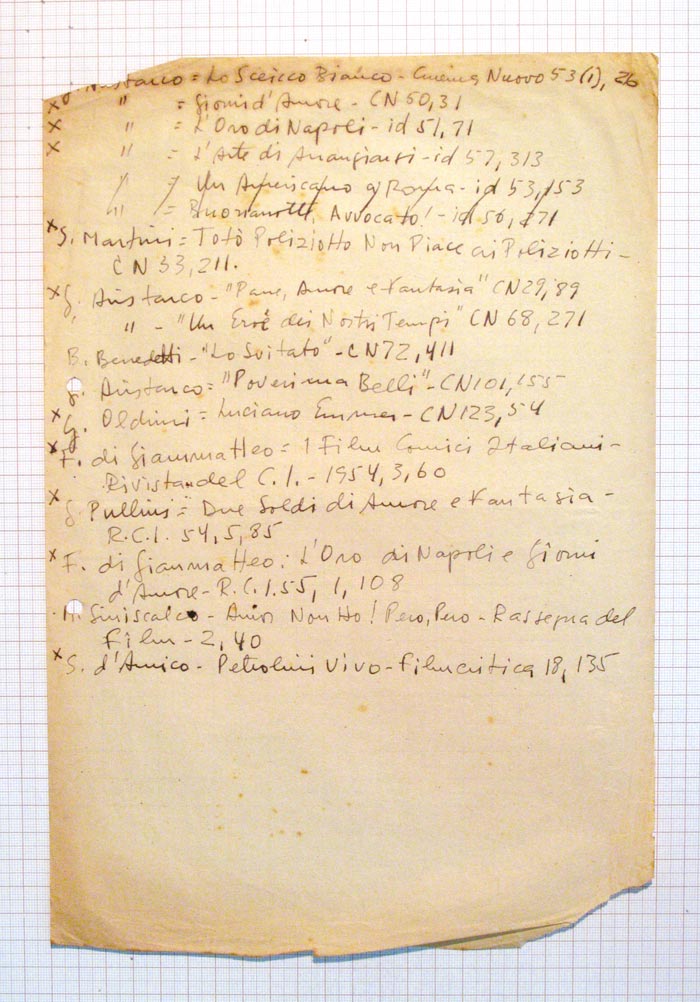 G. Aristarco = Lo Sceicco Bianco - Cinema Nuovo 53 (1), 26
x " = Giorni d'Amore - CN 50, 31
x " = L'Oro di Napoli - id 51, 71
x " = L'Arte di Arrangiarsi - id 57, 313
" = Un Americano a Roma - id 53, 153
" = Buonanotte, Avvocato! - id 56, 271
x S. Martini = Totò Poliziotto Non Piace ai Poliziotti -
CN 33, 211.
x G. Aristarco - "Pane, Amore e Fantasia" CN 29, 89
" - "Un Eroe dei Nostri Tempi" CN 68, 271
B. Benedetti - "Lo Svitato" - CN 72, 411
G. Aristarco = "Poveri ma Belli" - CN 101, 155
x G. Oldrini = Luciano Emmer - CN 123, 54
x F. di Giammatteo = I Film Comici Italiani -
Rivista del C.I. - 1954, 3, 60
x G. Pullini = Due Soldi di Amore e Fantasia -
R.C.I. 54, 5, 85
x F. di Giammatteo: L'Oro di Napoli e Giorni
d'Amore - R.C.I. 55, 1, 108
M. Siniscalco - Amor Non Ho! Pero, Pero - Rassegna del
Film - 2, 40
x S. d'Amico - Petrolini Vivo - Filmcritica 18, 135